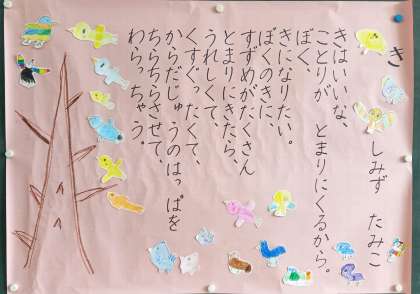 き
しみず たみこ
きはいいな、
ことりが とまりにくるから。
ぼく、
きになりたい。
ぼくのきに、
すずめがたくさん
とまりにきたら、
うれしくて、
くすぐったくて、
からだじゅうのはっぱを
ちらちらさせて、
わらっちゃう。